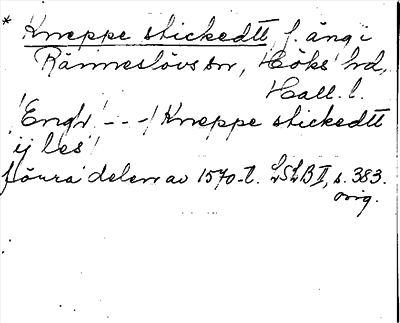 * Kneppe stickedtt, f. äng i
Ränneslövs sn, Höks hd,
Hall. l.
"Engh" - - -/ Kneppe stickedtt
ij les/
förra delen av 1570-t. LSLB II, s. 383.
orig.